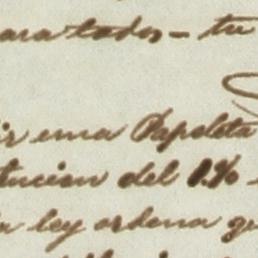 para todos - tu
ir una Papeleta
tucion del 1.%
a ley ordena qu